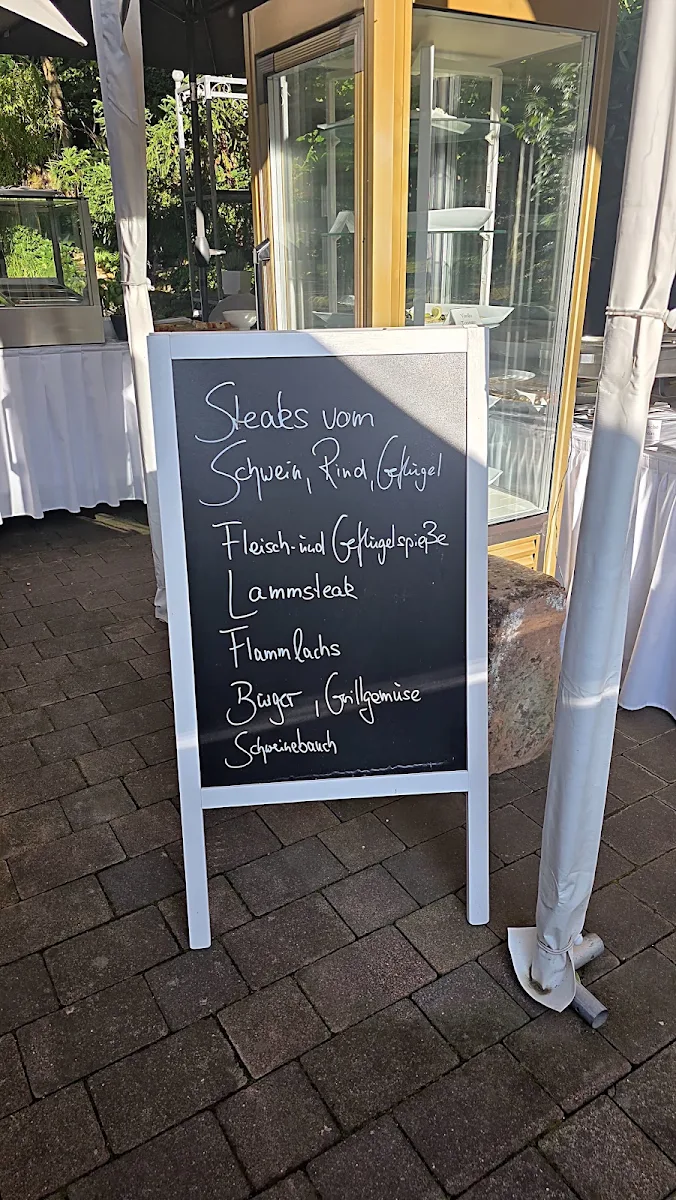 Steaks vom
Schwein, Rind, Geflügel
Fleisch- und Geflügelspieße
Lammsteak
Flammlachs
Burger, Grillgemüse
Schweinebauch